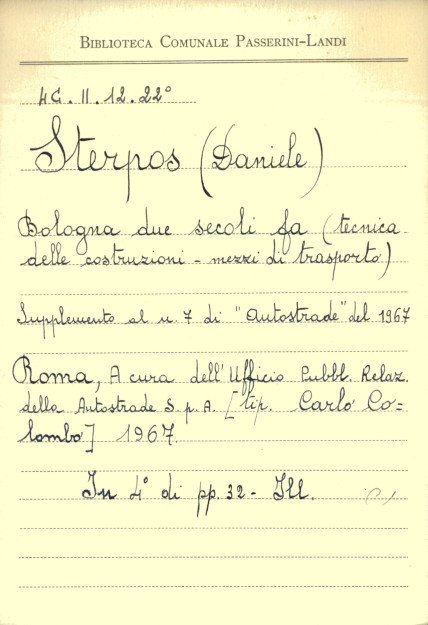 BIBLIOTECA COMUNALE PASSERINI-LANDI
4C. II. 12. 22°
Sterpos (Daniele)
Bologna due secoli fa (tecnica
delle costruzioni - mezzi di trasporto)
Supplemento al n. 7 di "Autostrade" del 1967
Roma, A cura dell'Ufficio Pubbl. Relaz.
della Autostrade S.p.A. [tip. Carlo Co=
lombo] 1967
In 4° di pp. 32 - Ill.